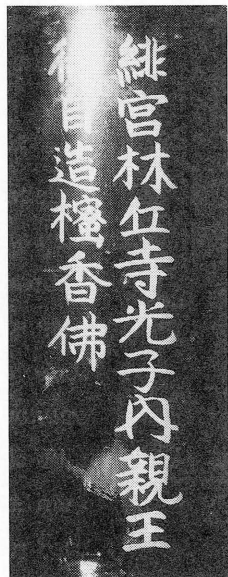 緋宮林丘寺光子内親王
自造櫁香佛